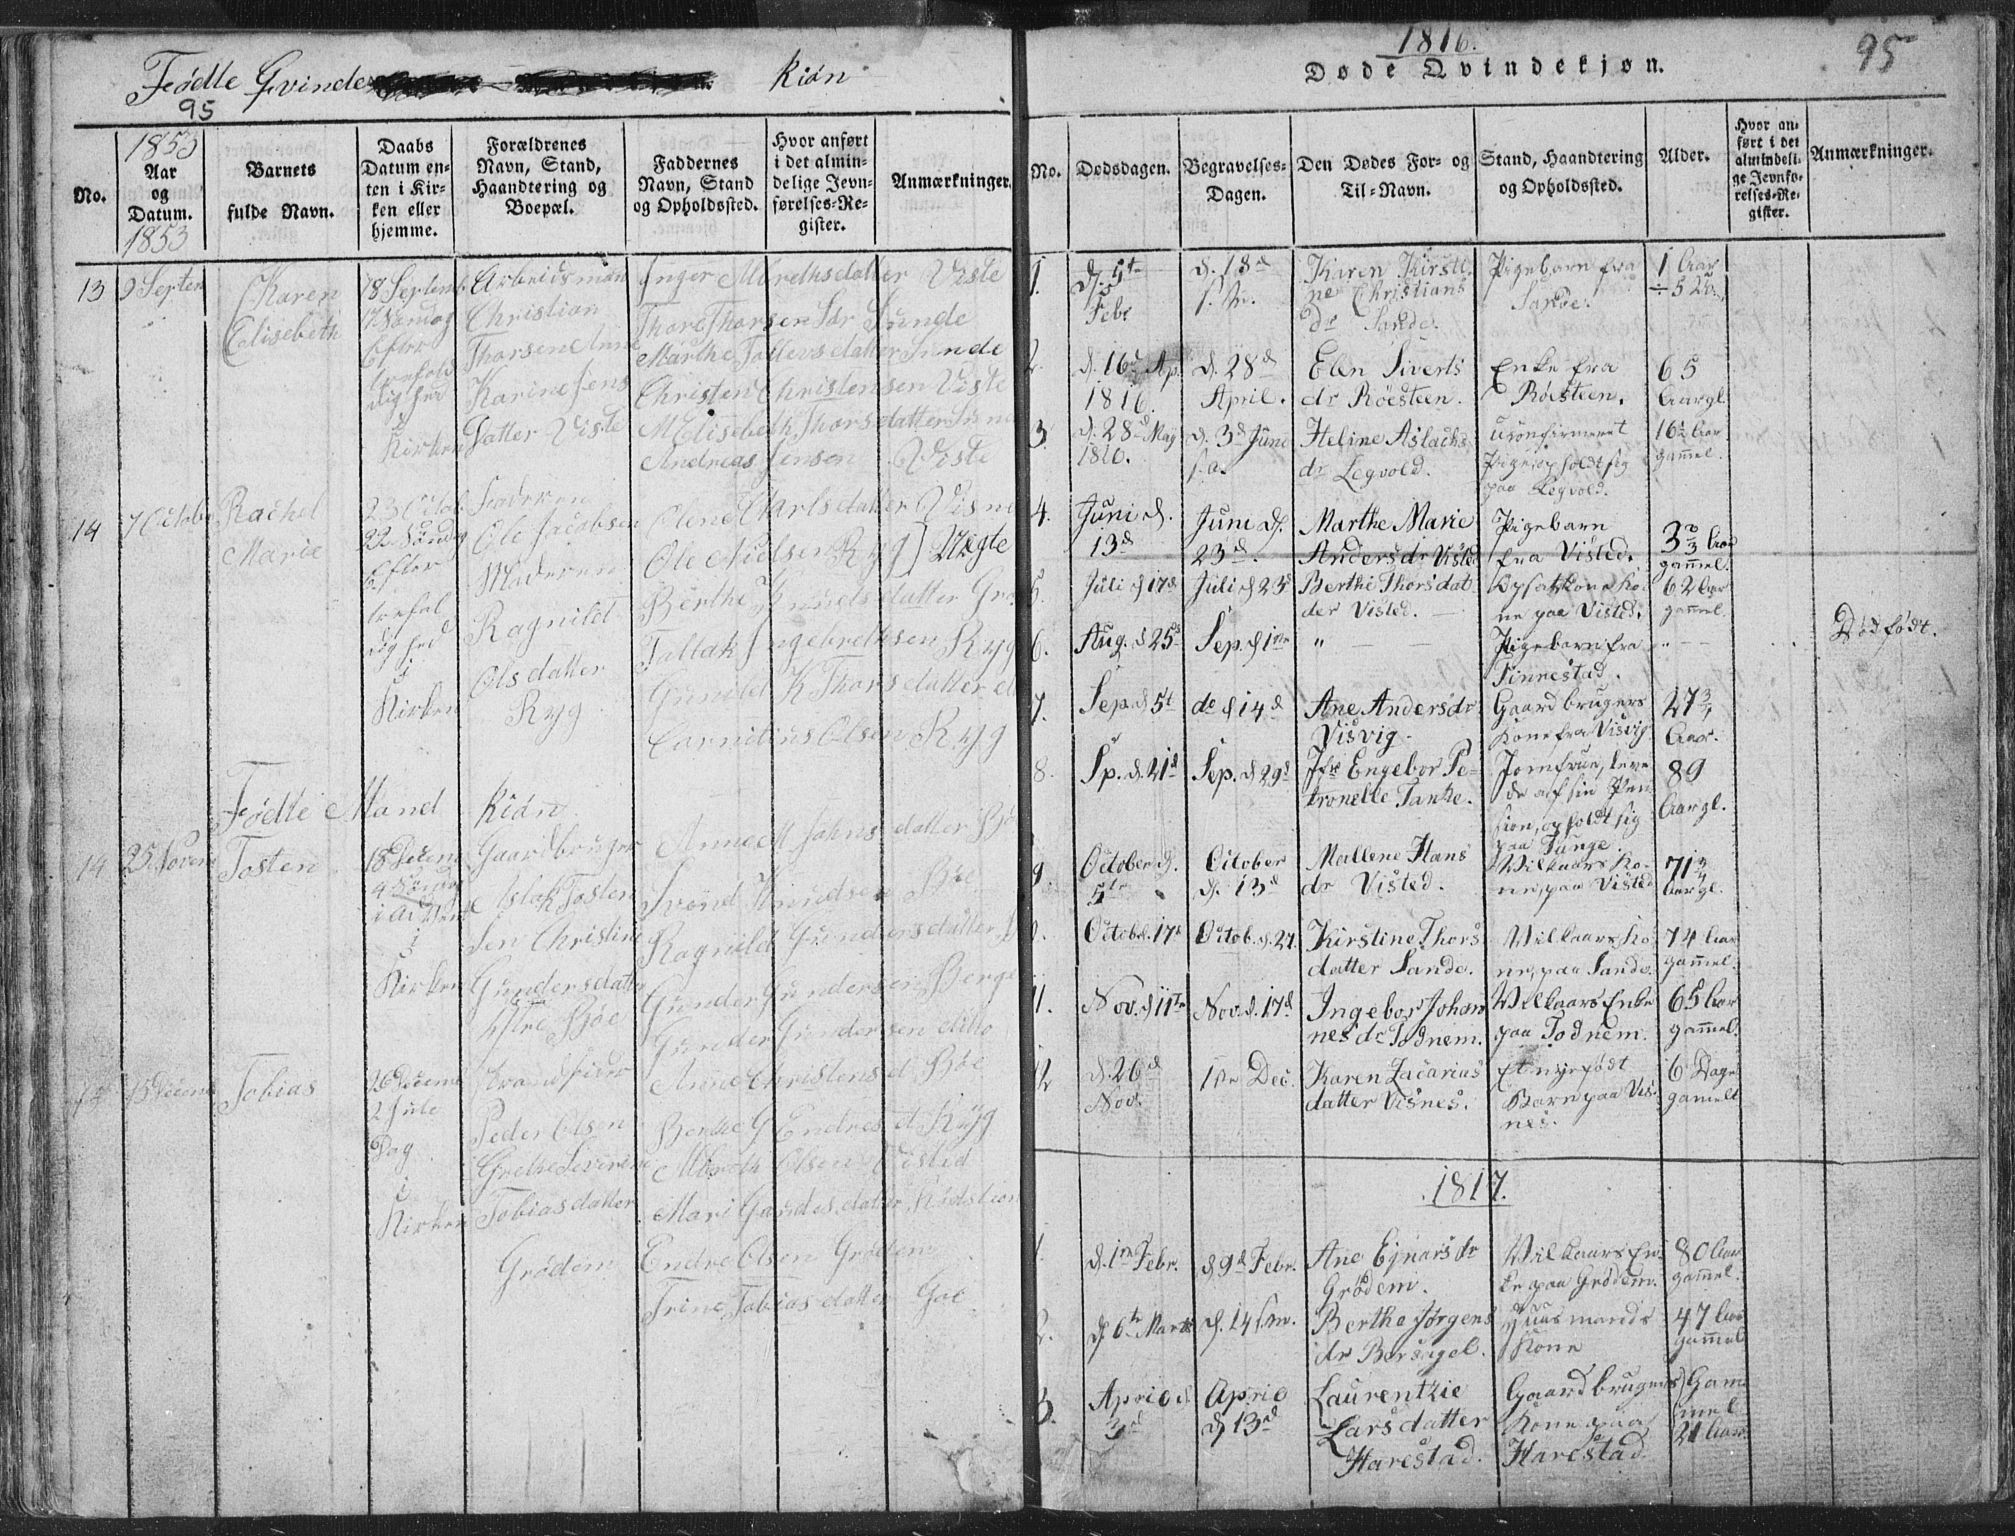 Fødte Qvinde kiøn
95
1853
No.
Aar og Datum.
1853
Barnets fulde Navn.
Daabs Datum enten i Kirken eller hjemme.
Forældrenes Navn, Stand, Haandtering og Boepæl.
Faddernes Navn, Stand og Opholdssted.
Hvor anført i det almindelige Jevnførelses-Register.
Anmærkninger.
13
9 Septem
Karen
Elisebeth
18 Septemb
17 Søndag
Efter
trefol
dighed
i
Kirken
Arbeidsman
Christian
Thorsen Ane
Karine Jens
Datter Viste
Inger Mbrethsdatter Viste
Thore Thorsen Sør Sunde
Marthe Tollevsdatter Sunde
Christen Christensen Viste
M Elisebeth Thorsdatter Sun
Andreas Jensen Viste
14
7 Octobe
Rachel
Marie
23 Octob
22 Søndag
Efter
trefol
dighed
i
Kirken
Faderen
Ole Jacobsen
Moderen
Ragnild
Olsdatter
Ryg
Olene Carlsdatter Visne
Ole Nielsen Ryg Uægte
Berthe Knudsdatter Grø
Taltak Ingebrethsen Ryg
Gunild K Thorsdatter
Cornilius Olsen Ryg
Fødte Mand kiøn
14
25 Novem
Tosten
18 Decem
4 Søndag
i Advent
i
Kirken
Gaardbruger
Aslak Tosten
sen Christine
Gundersdatter
Bøe
Anne M Johnsdatter Bø
Svend Knudsen Bøe
Ragnild Gundersdatter
Gunder Gundersen Berge
Gunder Gundersen ditto
15 Decem
Tobias
26 Decem
2 Jule
Dag
i
Kirken
Strandsidder
Peder Olsen
Grethe Severine
Tobiasdatter
Grødem
Anne Christens d Bøe
Berthe G Endres d Ryg
Mbreth Olsen Visted
Mari Gardes datter Rødstien
Endre Olsen Grødem
Trine Tobiasdatter Goe
1816.
95
Døde Qvindekjøn.
No.
Dødsdagen.
Begravelses-Dagen.
Den Dødes For- og Til-Navn.
Stand, Haandtering og Opholdssted.
Alder.
Hvor anført i det almindelige Jevnførelses-Register.
Anmærkninger.
1.
d. 5te
Febr
d. 18d
s. M.
Karen Kirsti
ne Christians
dr Sande.
Pigebarn fra
Sande.
1 Aar
÷ 5 D.
2.
d. 16d Ap.
1816.
d. 28d
April.
Elen Siverts
dr Røesteen.
Enke fra
Røesteen.
65
Aar gl.
3.
d. 28d May
1816.
d. 3d Juni
s. a.
Heline Aslachs
dr Legvold.
uconfirmeret
Pige, opholdt sig
paa Legvold.
16½ Aar
gammel.
4.
Juni d.
13d
Juni d.
23d
Marthe Marie
Andersdr Visted
Pigebarn
fra Visted.
3 Aar
gammel.
5.
Juli d 17d
Juli d 23d
Berthe Thorsdat
der Visted.
Opsatskone ko-
ne paa Visted.
62 Aar
gammel.
6.
Aug. d 25d
Sep. d 1te
"
Pigebarn fra
Finnestad.
"
Dødfødt.
7.
Sep. d 5t
do d 14d
Ane Andersdr
Visvig.
Gaardbrugers
Kone fra Visvig
27
Aar.
8.
Sp. d. 21d
Sep. d 29d
Jfr Engebor Pe-
tronelle Tanke.
Jomfrue, leve
de af sin Pen
sion, opholdt sig
paa Tunge.
89
Aar gl.
9
October d.
5te
October
d. 13d
Mallene Hans
dr Visted.
Vilkaars ko-
ne, paa Visted
71¾
Aar gl.
Octob d. 17d
Octob. d. 27
Kirstine Thors
datter Sande.
Vilkaars ko
ne, paa Sande.
74 Aar
gammel.
11.
Nov. d 11te
Nov. d. 17d
Ingebor Johan
nesdr Todnem.
Vilkaars Enke
paa Todnem.
65 Aar
gammel.
12
d. 26d
Nov.
1te Dec.
Karen Zacarias
datter Visnes.
Et nyefødt
Barn paa Vis-
nes.
6 Dage
gamelt
1817.
1.
d. 1te Febr.
d 9d Febr.
Ane Ejnarsdr
Grødem.
Vilkaars En-
ke paa Grødem.
80 Aar
gammel.
2.
d 6te Marts
d. 14 s. m.
Berthe Jørgens
dr Børsagel.
Huusmands
Kone
47 Aar
gammel
3.
April d.
3d
April
d 13d
Laurentzie
Larsdatter
Harestad.
Gaardbrugers
Kone paa
Harestad
Gam
mel
21 Aar